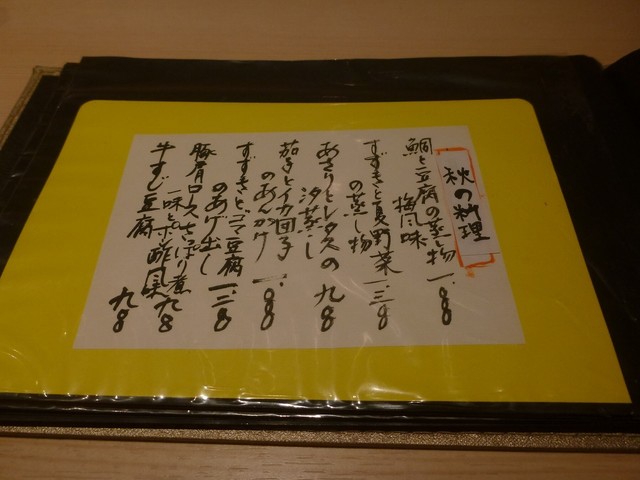 秋の料理
鯛と豆腐の蒸し物 一.〇八
梅風味
すずきと夏野菜
の蒸し物 一.三八
あさりとレタスの
汐蒸し 九八
茄子とイカ団子
のあんかけ 一.〇八
すずきとゴマ豆腐
のあげ出し 一.三八
豚肩ロースさっぱり煮
一味とポン酢風味 九八
牛すじ豆腐 九八